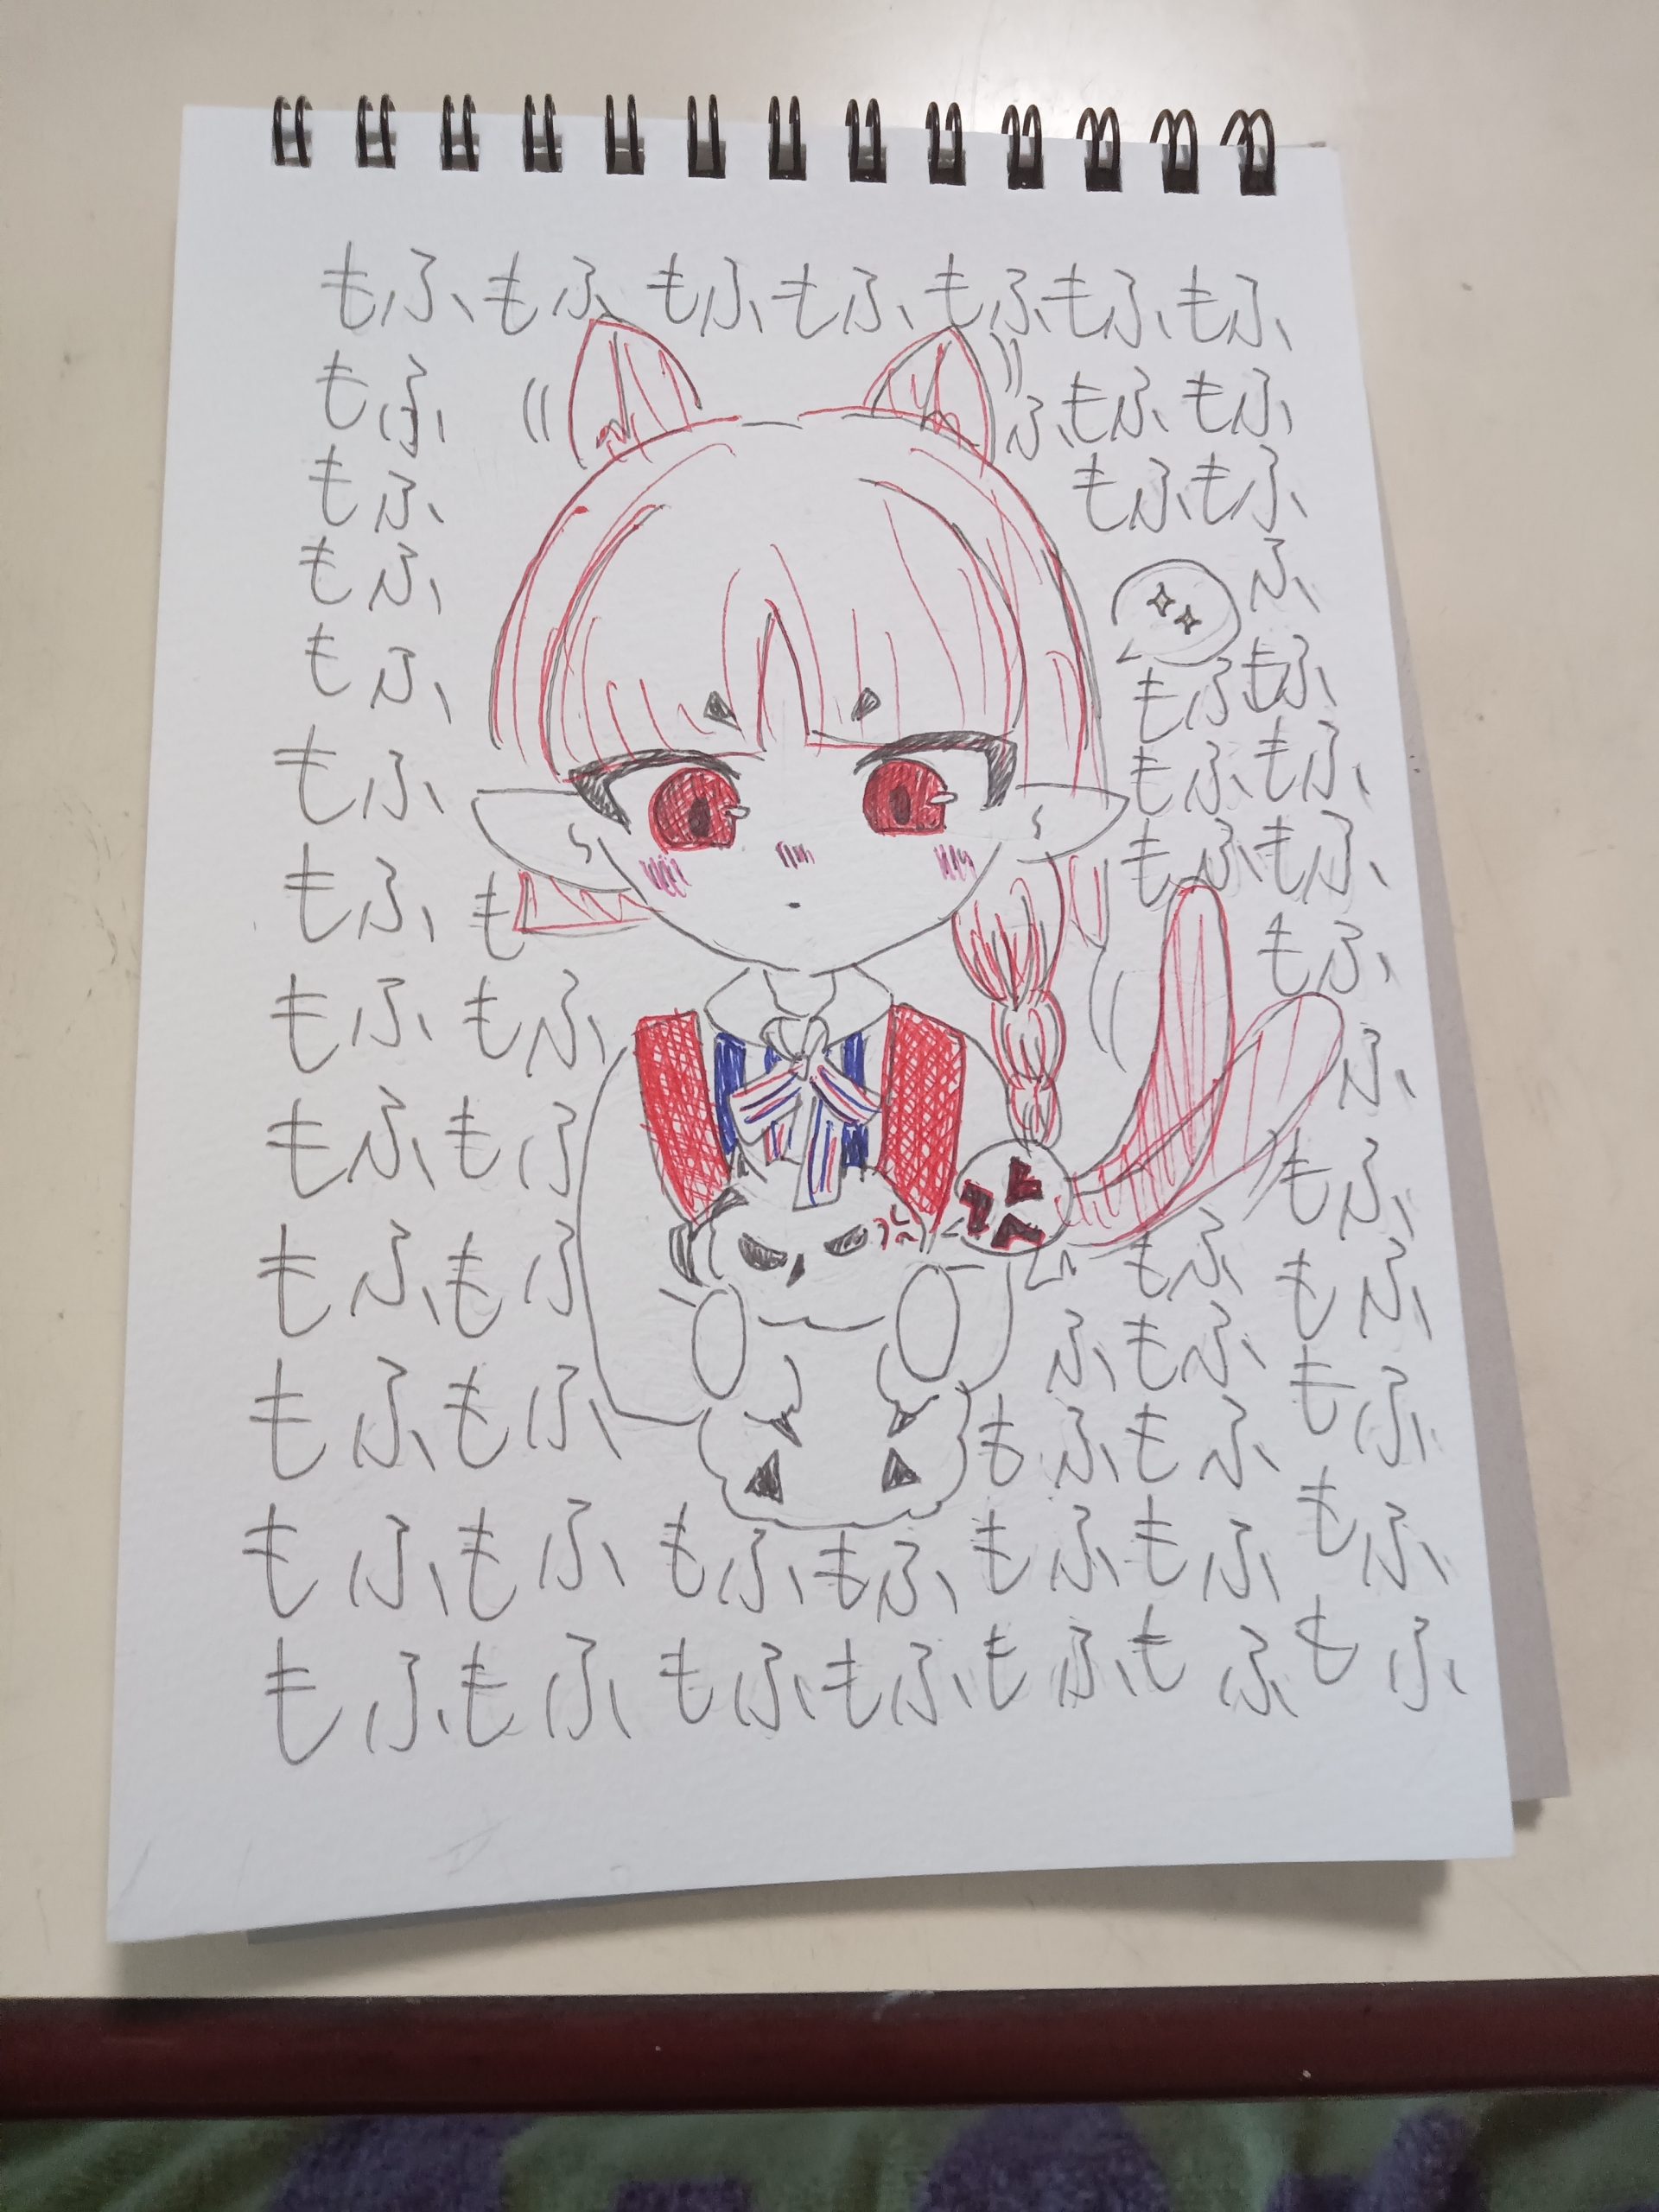 もふもふもふもふもふもふもふ
もふ ふもふもふ
もふ もふもふ
もふ ふ
もふ もふもふ
もふ もふもふ
もふも もふもふ
もふもふ もふ
もふもふ ふ
もふもふ もふ
もふもふ もふもふ
ふもふもふ
もふもふもふ
もふもふもふもふもふもふもふ
もふもふもふもふもふもふもふ